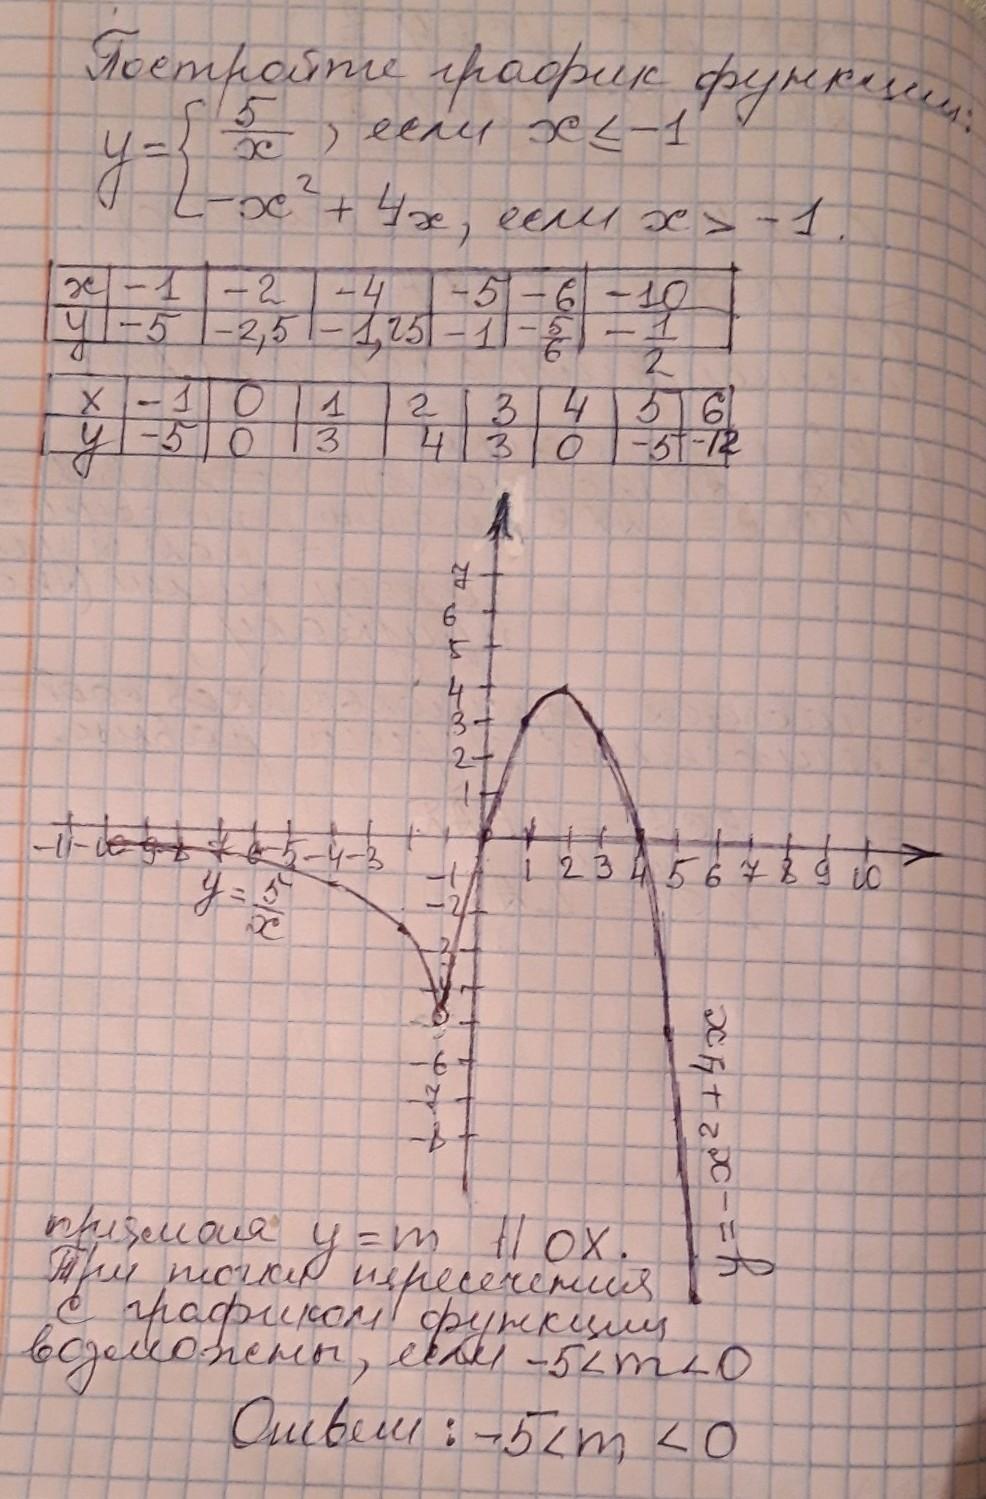 Постройте график функции:
y = { 5/x , если x ≤ -1
-x² + 4x, если x > -1.
x | -1 | -2 | -4 | -5 | -6 | -10
y | -5 | -2,5 | -1,25 | -1 | -5/6 | -1/2
x | -1 | 0 | 1 | 2 | 3 | 4 | 5 | 6
y | -5 | 0 | 3 | 4 | 3 | 0 | -5 | -12
7
6
5
4
3
2
1
-11 -10 -9 -8 -7 -6 -5 -4 -3
1 2 3 4 5 6 7 8 9 10
-1
-2
-6
-7
-8
y = 5/x
y = -x² + 4x
прямая y = m || OX.
Три точки пересечения
с графиком функции
возможны, если -5 < m < 0
Ответ: -5 < m < 0